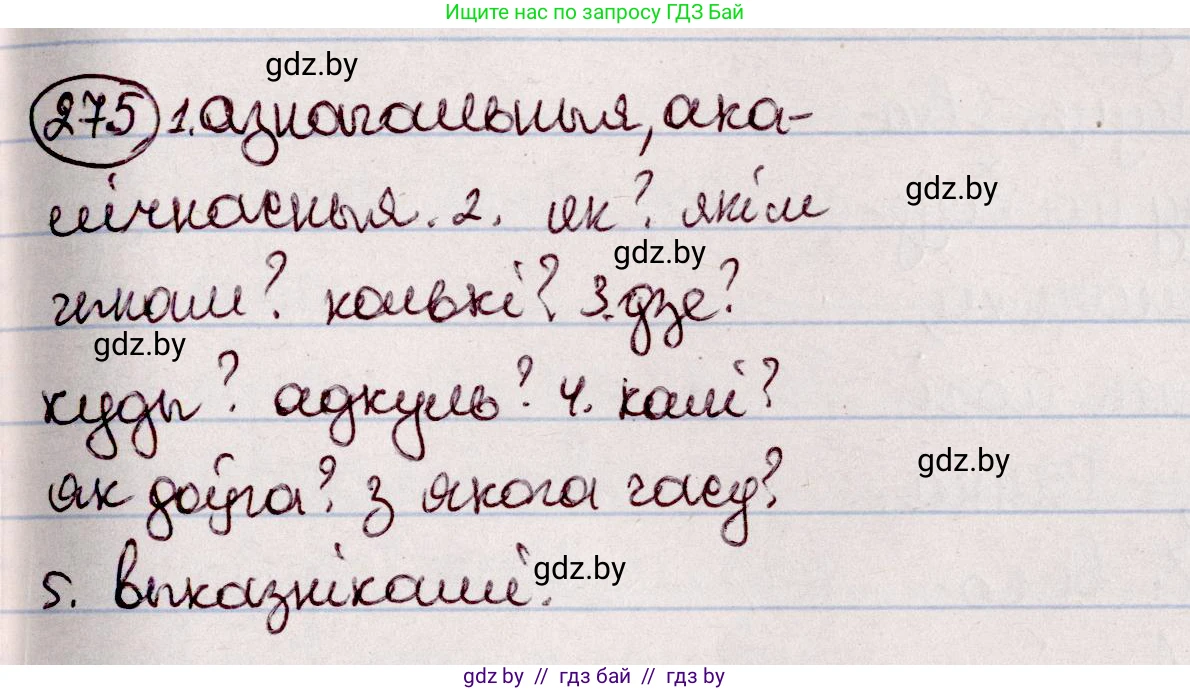 Ищите нас по запросу ГДЗ Бай
gdz.by
275 1. азначальныя, ака-
лічнасныя. 2. як? якім
gdz.by
gdz.by
чынам? колькі? 3. дзе?
gdz.by
куды? адкуль? 4. калі?
gdz.by
як доўга? з якога часу?
gdz.by
5. выказнікамі.
gdz.by // гдз бай // гдз by